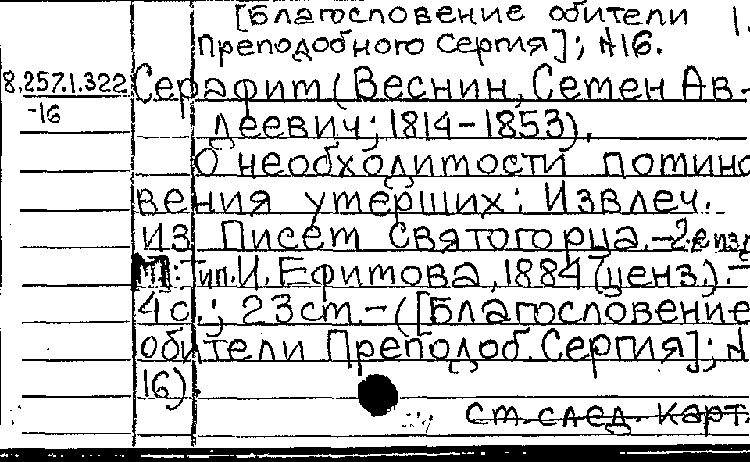 [Благословение обители 1.
Преподобного Сергия]; №16.
8.257.1.322 Серафим (Веснин, Семен Ав-
-16
деевич; 1814-1853).
О необходимости помино
вения умерших: Извлеч.
из Писем Святогорца.-2е изд
М.: Тип. И. Ефимова, 1884 (ценз.).-
4 с.; 23 см.-([Благословение
обители Преподоб. Сергия]; №
16).
см. след. карт.